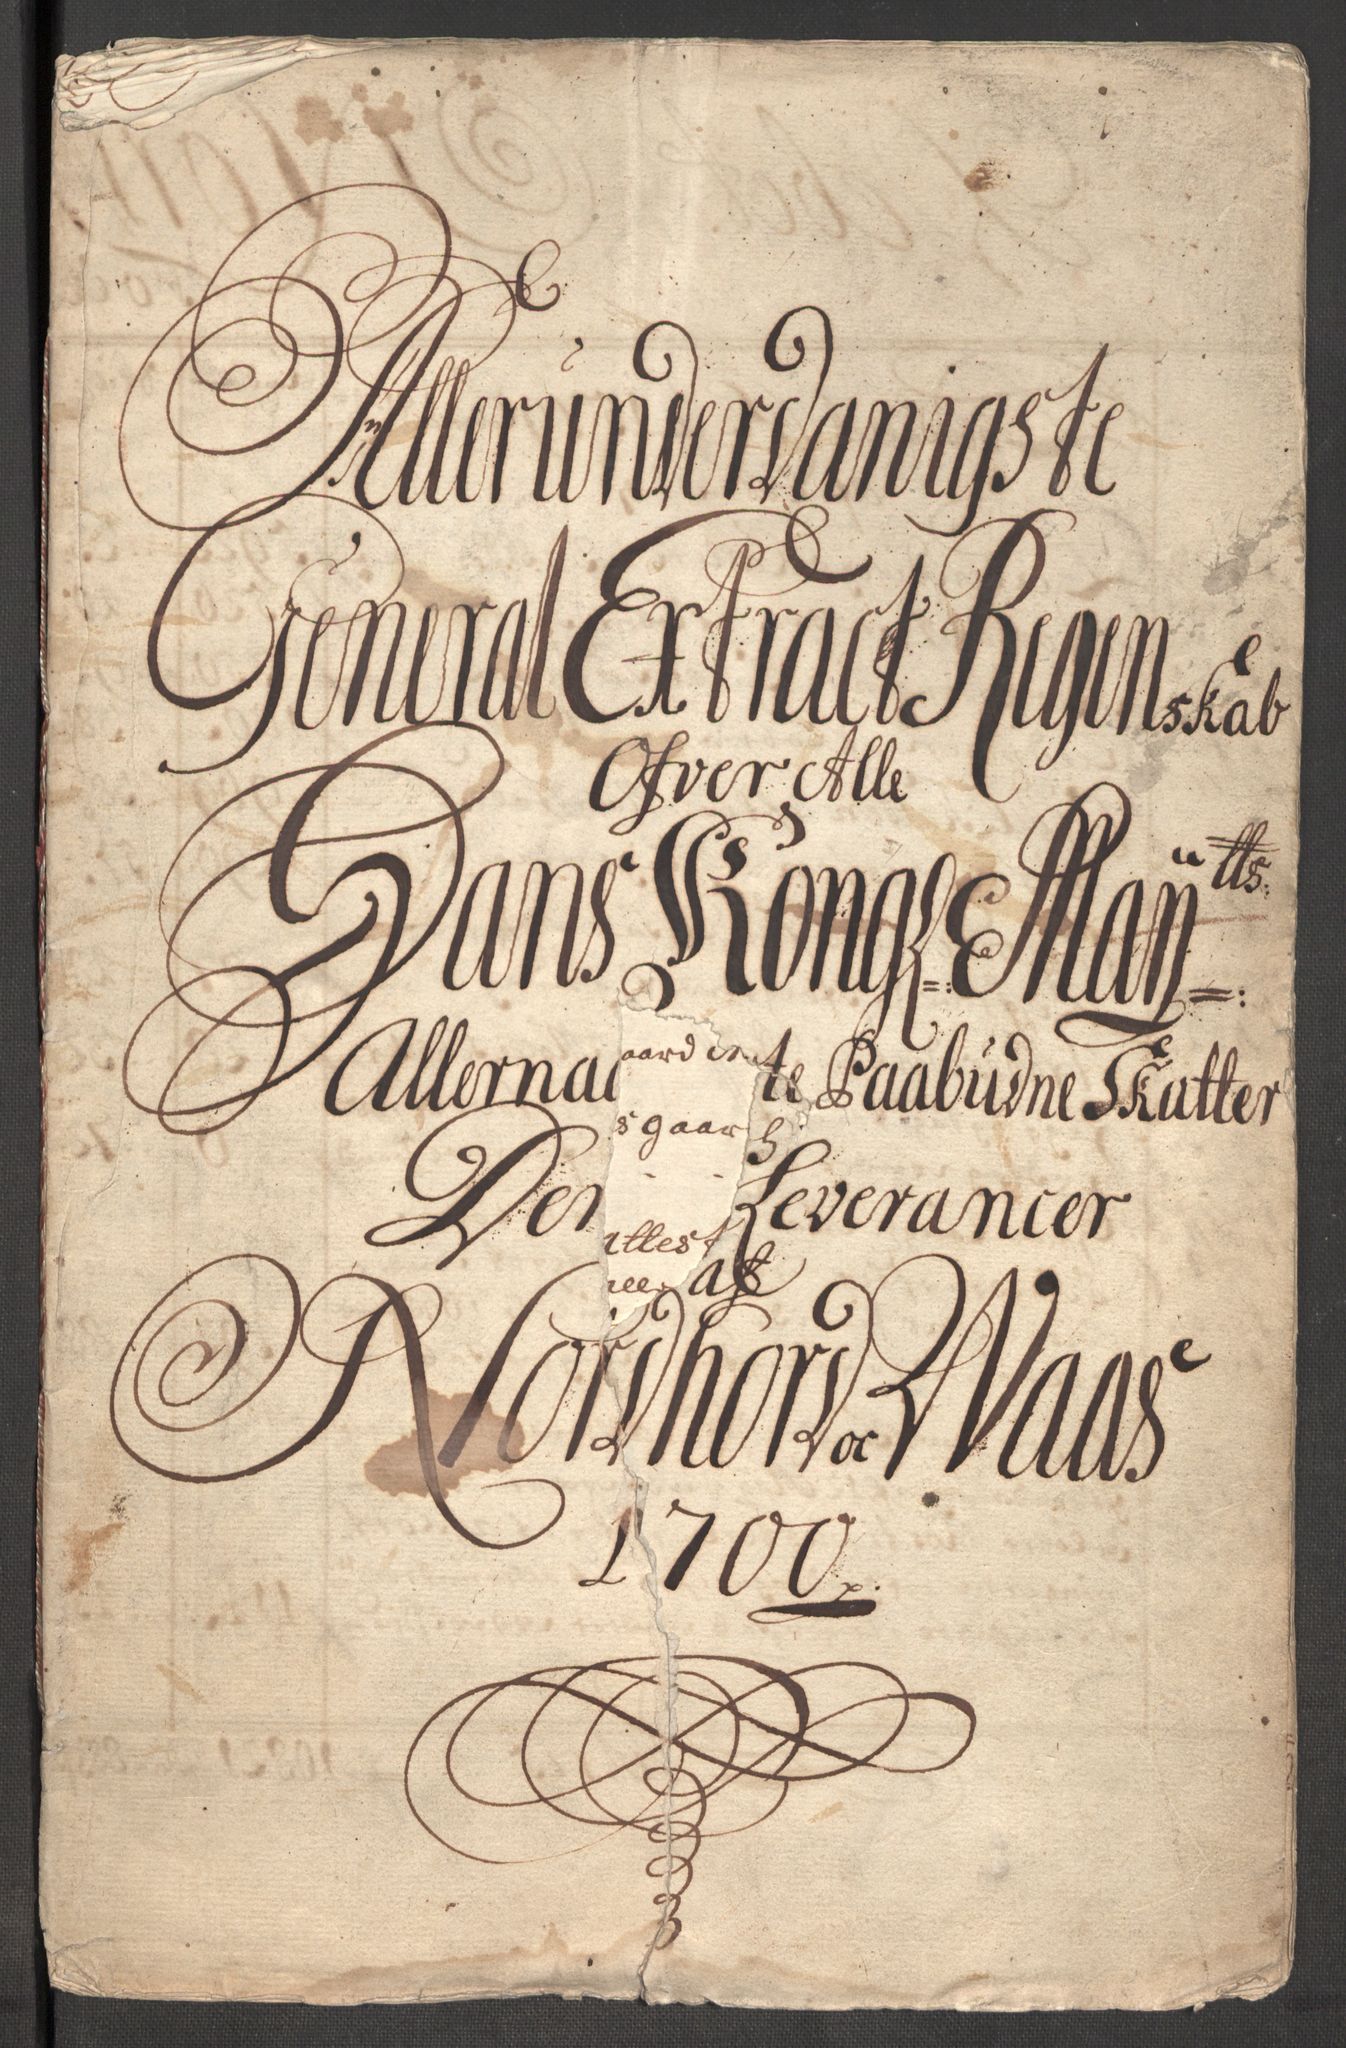 Allerunderdanigste
General Extract Regenskab
Ofver Alle
Hans Kongl=: Maÿtts=:
Allerna te Paabudne Skatter
Leverancer
af
Nordhord oc Waas
1700